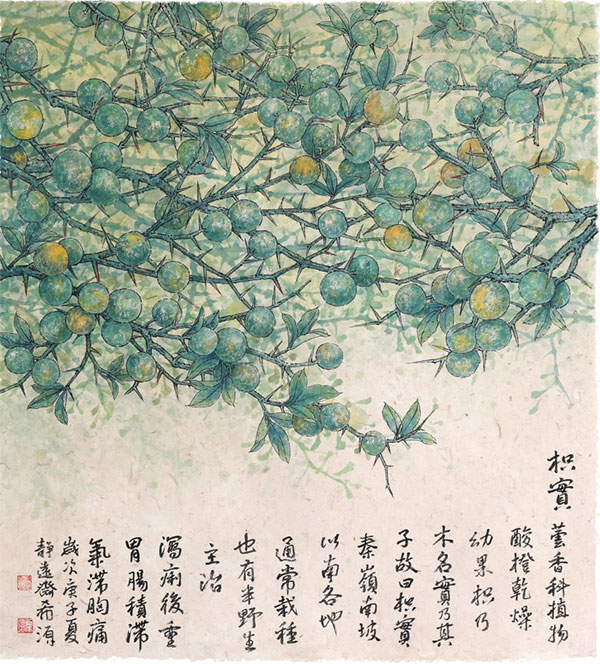 枳實 蕓香科植物
酸橙乾燥
幼果枳乃
木名實乃其
子故曰枳實
秦嶺南坡
以南各地
通常栽種
也有半野生
主治
瀉痢後重
胃腸積滯
氣滯胸痛
歲次庚子夏
靜遠齋希源